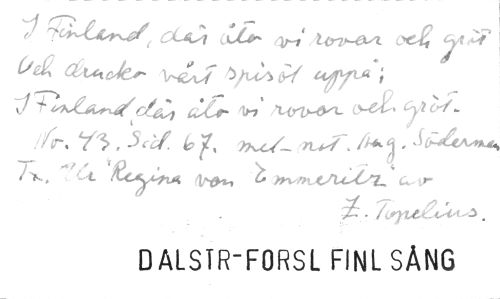 I Finland, där åto vi rovor och gröt
Och drucko vårt spisöl uppå;
I Finland, där åto vi rovor och gröt.
No. 43. Sid. 67. mel. not. Aug. Söderman
Tr. "Ur Regina von Emmeritz" av
Z. Topelius.
DALSTR-FORSL FINL SÅNG